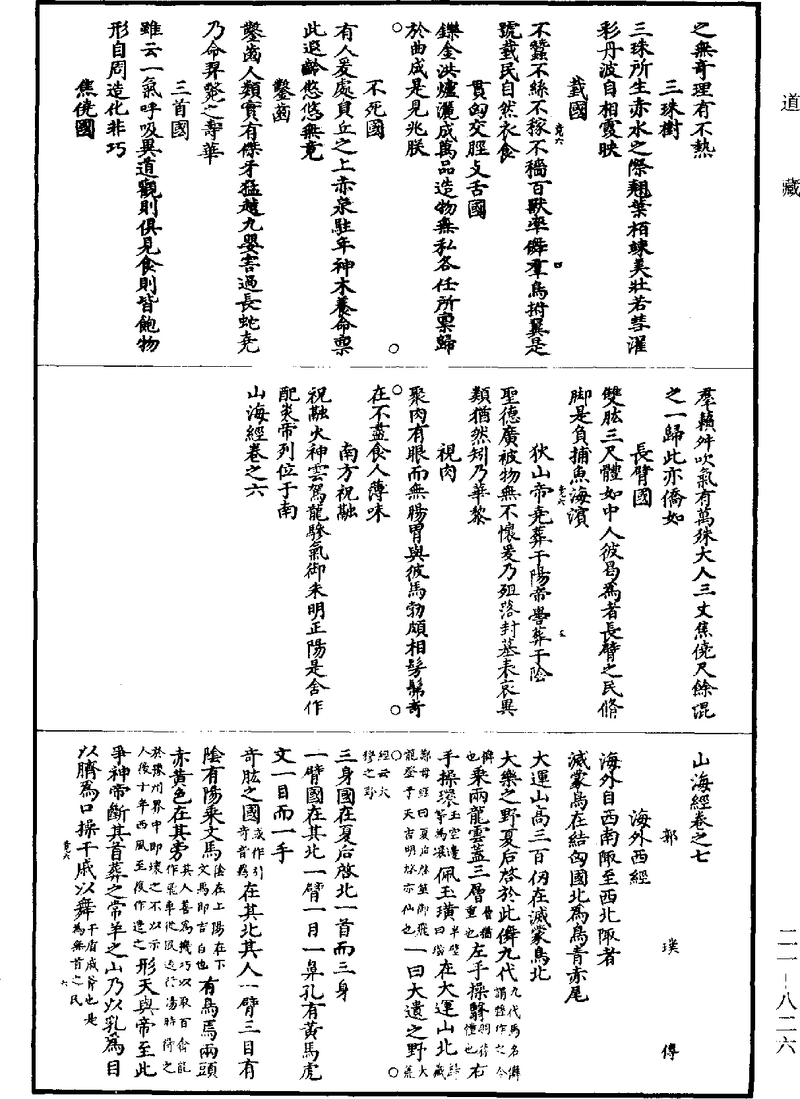 道藏
之無奇理有不熱
三珠樹
三珠所生赤水之際翹葉栢竦美壯若彗濯
彩丹波自相霞映
臷國
不蠶不絲不稼不穡百獸率儛羣鳥拊翼是
號臷民自然衣食
貫匈交脛支舌國
鑠金洪爐灑成萬品造物無私各任所稟歸
於曲成是見兆朕
不死國
有人爰處員丘之上赤泉駐年神木養命稟
此遐齡悠悠無竟
鑿齒
鑿齒人類實有傑牙猛越九嬰害過長蛇堯
乃命羿斃之壽華
三首國
雖云一氣呼吸異道觀則俱見食則皆飽物
形自周造化非巧
焦僥國
羣籟舛吹氣有萬殊大人三丈焦僥尺餘混
之一歸此亦僑如
長臂國
雙肱三尺體如中人彼曷為者長臂之民脩
脚是負捕魚海濱
狄山帝堯葬于陽帝嚳葬于陰
聖德廣被物無不懷爰乃殂落封墓表哀異
類猶然矧乃華黎
視肉
聚肉有眼而無腸胃與彼馬勃頗相髣髴奇
在不盡食人薄味
南方祝融
祝融火神雲駕龍驂氣御朱明正陽是含作
配炎帝列位于南
山海經卷之六
山海經卷之七
郭璞傳
海外西經
海外自西南陬至西北陬者
滅蒙鳥在結匈國北為鳥青赤尾
大運山高三百仞在滅蒙鳥北
大樂之野夏后啓於此儛九代九代馬名儛謂盤作之令
儛也乘兩龍雲蓋三層層猶重也左手操翳羽葆幢也右
手操環玉空邊等為環佩玉璜半璧曰璜在大運山北歸藏
鄭母經曰夏后啓筮御飛龍登于天吉明啓亦仙也一曰大遺之野大荒
經云大穆之野
三身國在夏后啓北一首而三身
一臂國在其北一臂一目一鼻孔有黃馬虎
文一目而一手
奇肱之國或作弘奇音羈在其北其人一臂三目有
陰有陽乘文馬陰在上陽在下文馬即吉良也有鳥焉兩頭
赤黃色在其旁其人善為機巧以取百禽能作飛車從風遠行湯時得之
於豫州界中即壞之不以示人後十年西風至復作遣之形天與帝至此
爭神帝斷其首葬之常羊之山乃以乳為目
以臍為口操干戚以舞干盾戚斧也是為無首之民
二一-八二六